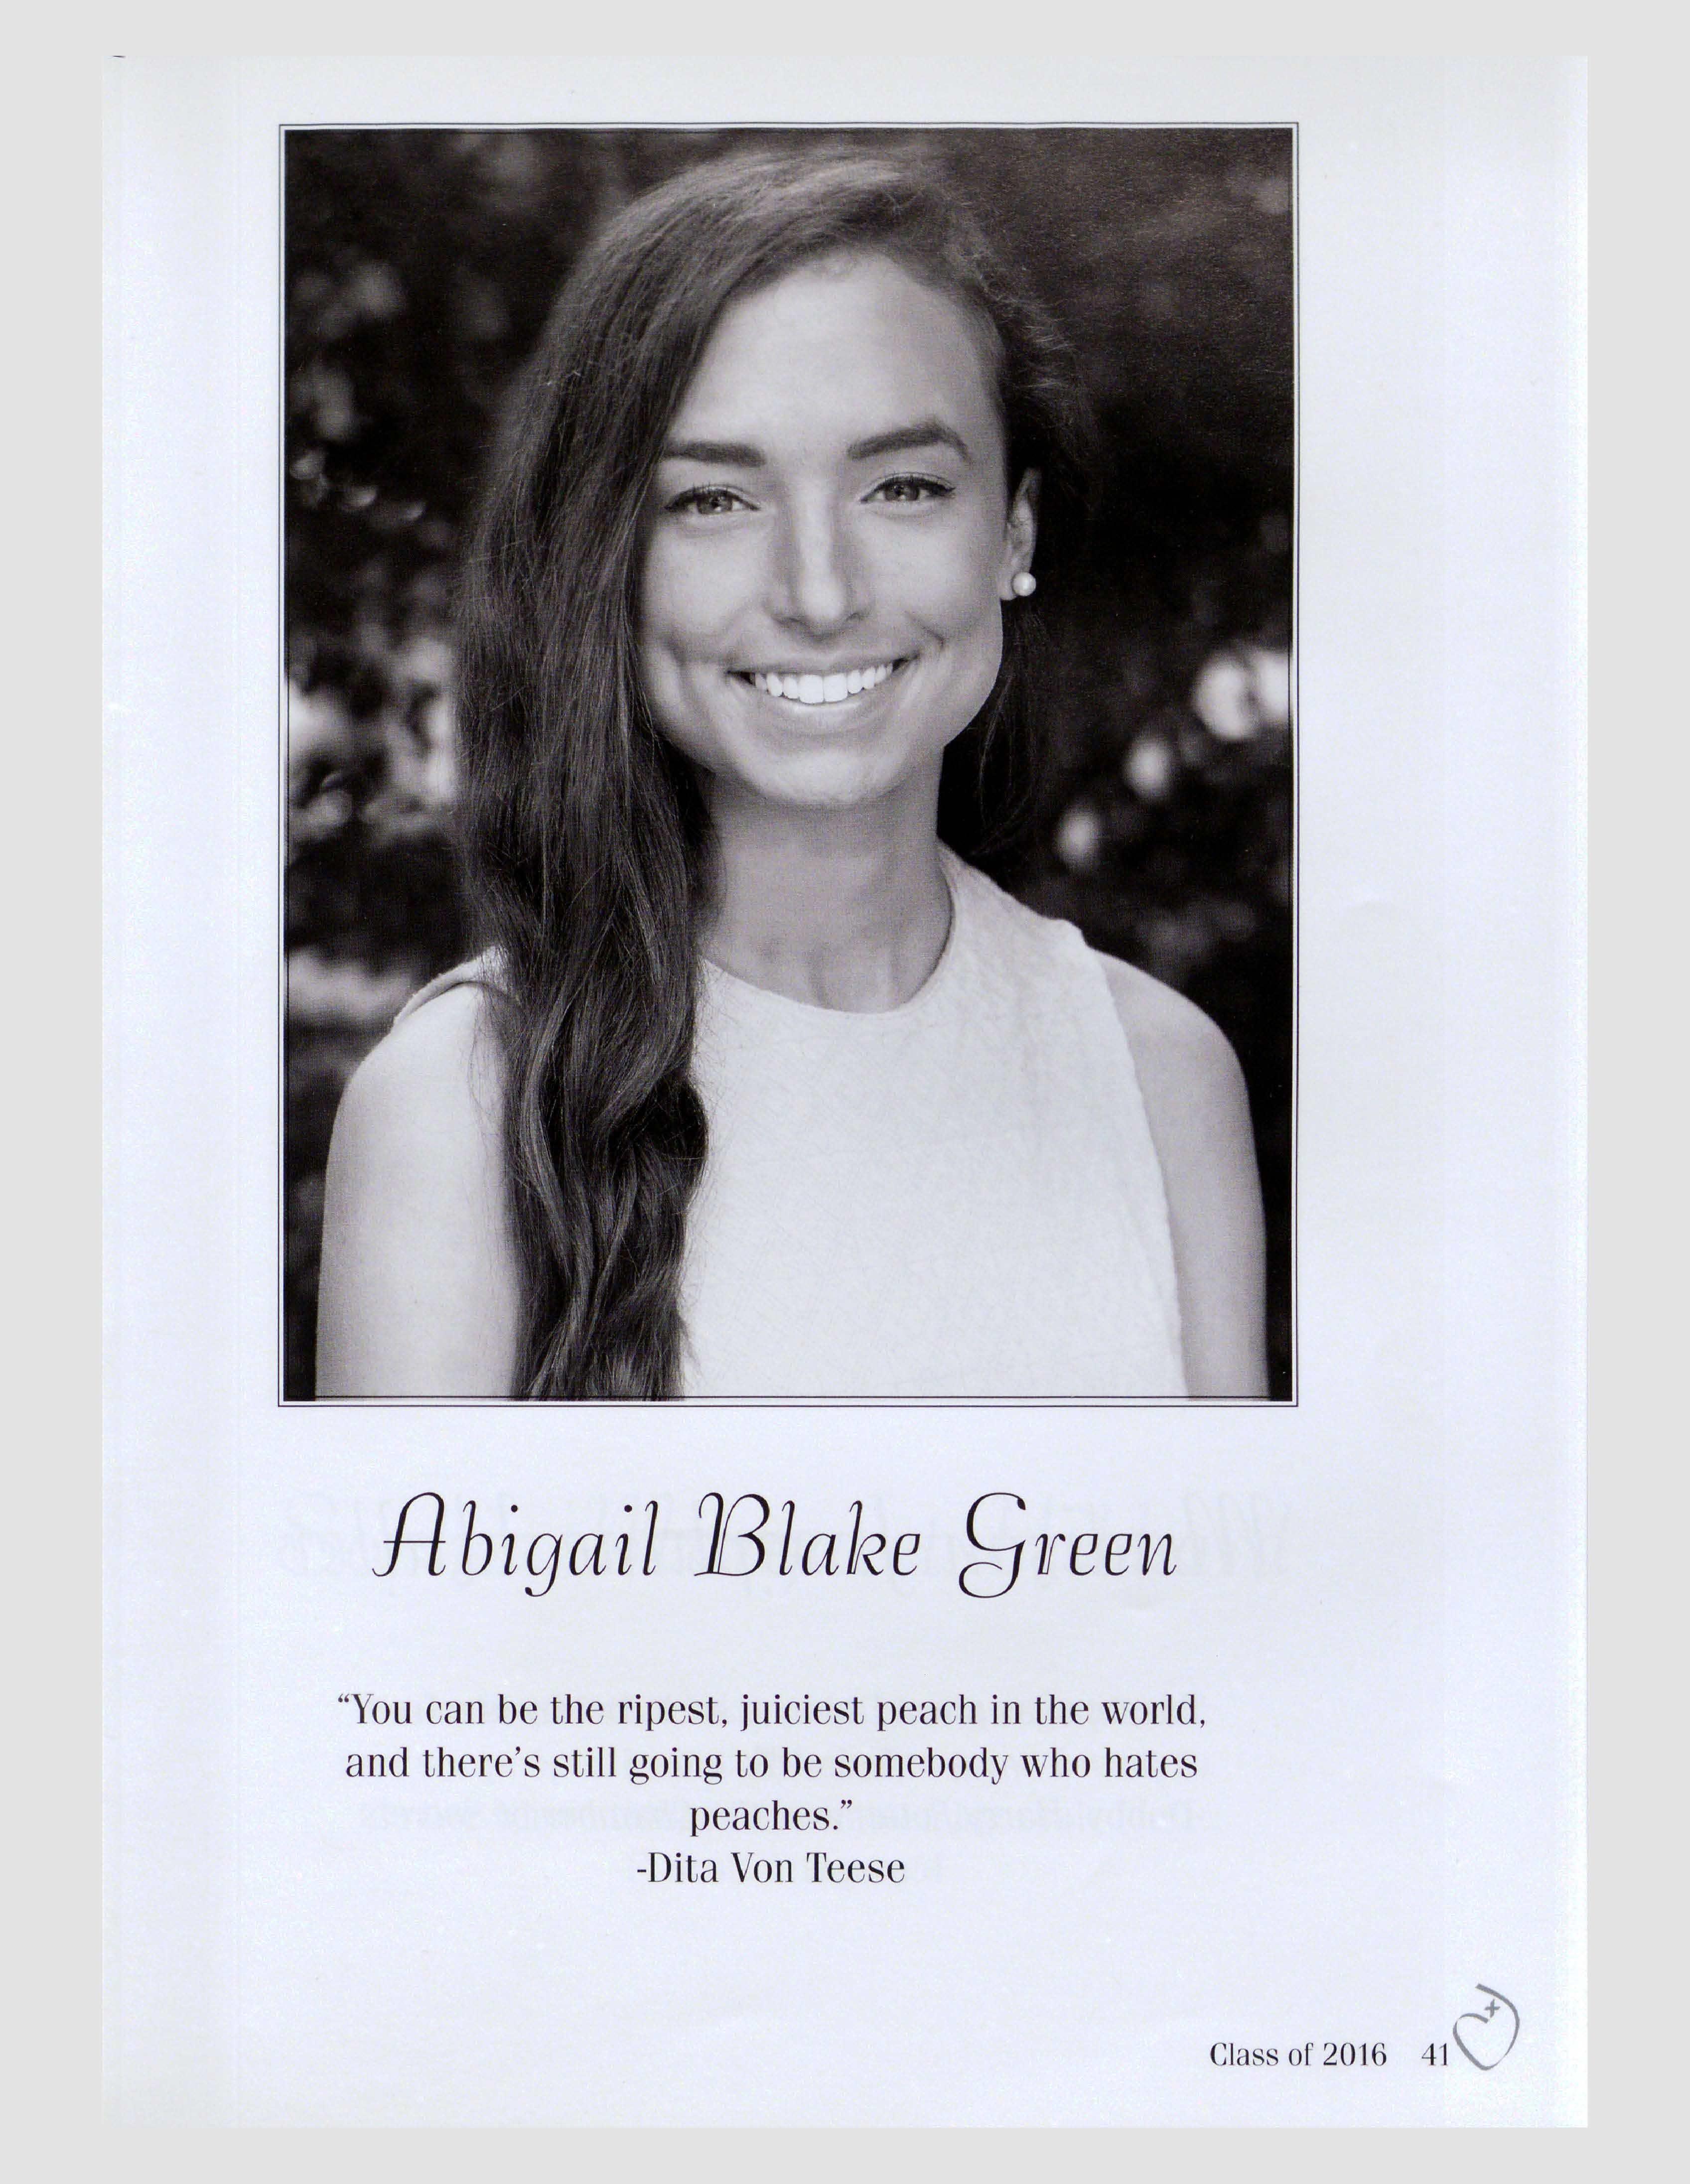 Abigail Blake Green
“You can be the ripest, juiciest peach in the world,
and there’s still going to be somebody who hates
peaches.”
-Dita Von Teese
Class of 2016 41